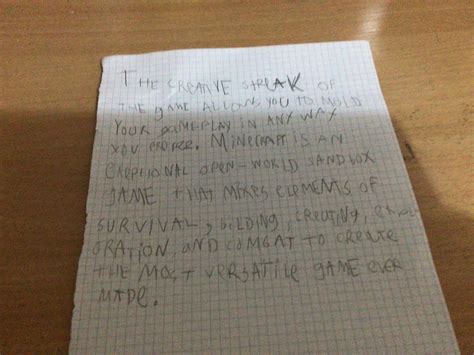 THE CREATIVE STREAK OF
THE GAME ALLOWS YOU TO MOLD
YOUR GAMEPLAY IN ANY WAY
YOU
MINECRAFT IS AN
EXEPTIONAL OPEN-WORLD SANDBOX
GAME THAT MIXES ELEMENTS OF
SURVIVAL, BILDING, CREATING,
ORATION, AND COMBAT TO CREATE
THE MOST VERSATILE GAME EVER
MADE.